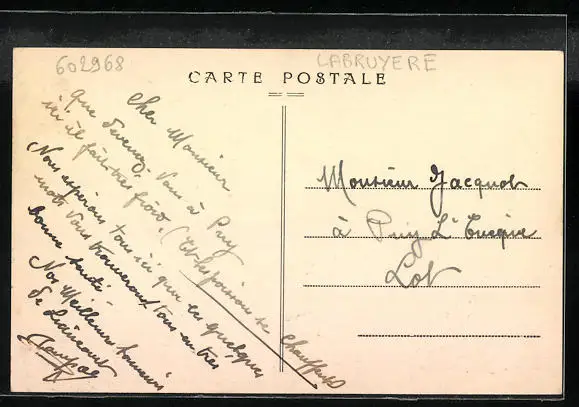 602968
LABRUYERE
CARTE POSTALE
Cher Monsieur
Que devenez vous à Puy
ici il fait très froid. (
Nous espérons tous ici que ces quelques
mots vous trouveront tous en très
bonne santé.
Nos Meilleurs
de Liancourt
Monsieur Jacquot
à Puy L'Eveque
Lot